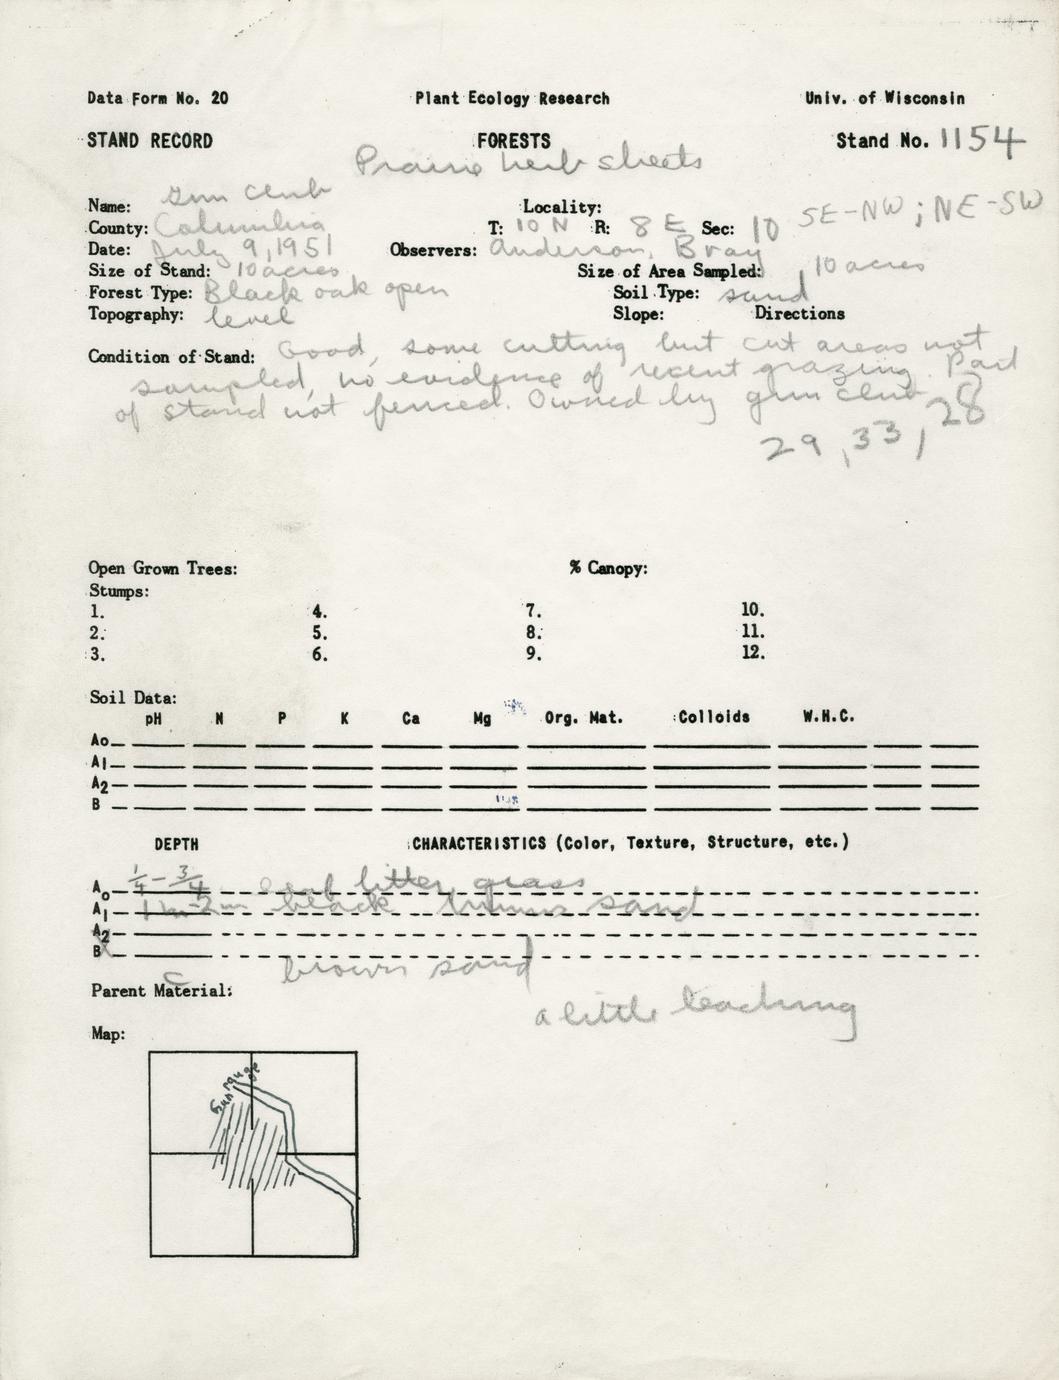 Data Form No. 20 Plant Ecology Research Univ. of Wisconsin
STAND RECORD FORESTS Stand No. 1154
Prairie herb sheets
Name: Gun Club Locality:
County: Columbia T: 10 N R: 8 E Sec: 10 SE-NW; NE-SW
Date: July 9, 1951 Observers: Anderson, Bray
Size of Stand: 10 acres Size of Area Sampled: 10 acres
Forest Type: Black oak open Soil Type: sand
Topography: level Slope: Directions
Condition of Stand: Good, some cutting but cut areas not
sampled, no evidence of recent grazing. Part
of stand not fenced. Owned by gun club
29, 33, 28
Open Grown Trees: % Canopy:
Stumps:
1. 4. 7. 10.
2. 5. 8. 11.
3. 6. 9. 12.
Soil Data:
pH N P K Ca Mg Org. Mat. Colloids W.H.C.
Ao
A1
A2
B
DEPTH CHARACTERISTICS (Color, Texture, Structure, etc.)
Ao 1/4 - 3/4 leaf litter, grass
A1 1 in-2 in black humus sand
A2
B brown sand
C
Parent Material: a little leaching
Map:
Gun range